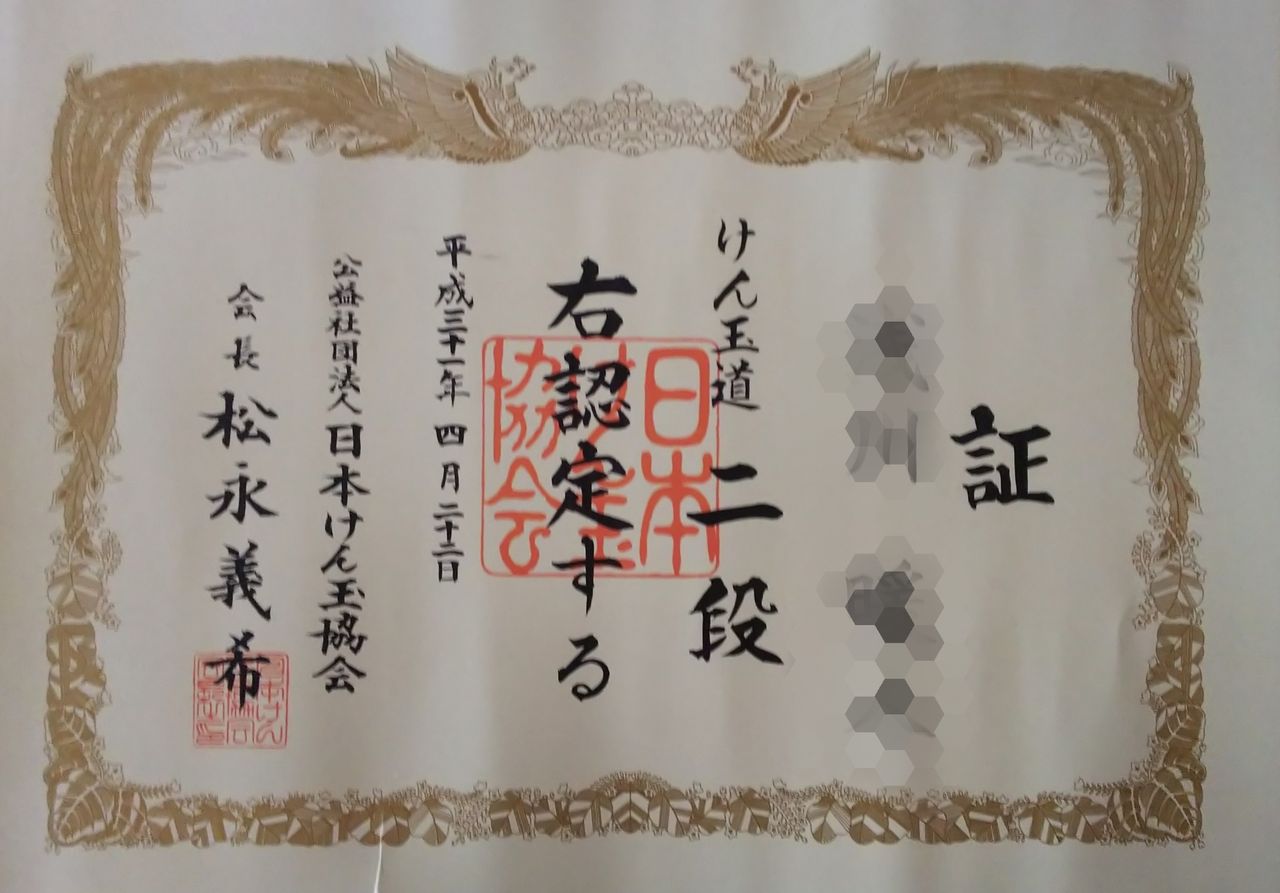 証
川
けん玉道 二段
右認定する
平成三十一年 四月二十二日
公益社団法人 日本けん玉協会
会長 松永義希
日本
けん玉
協会